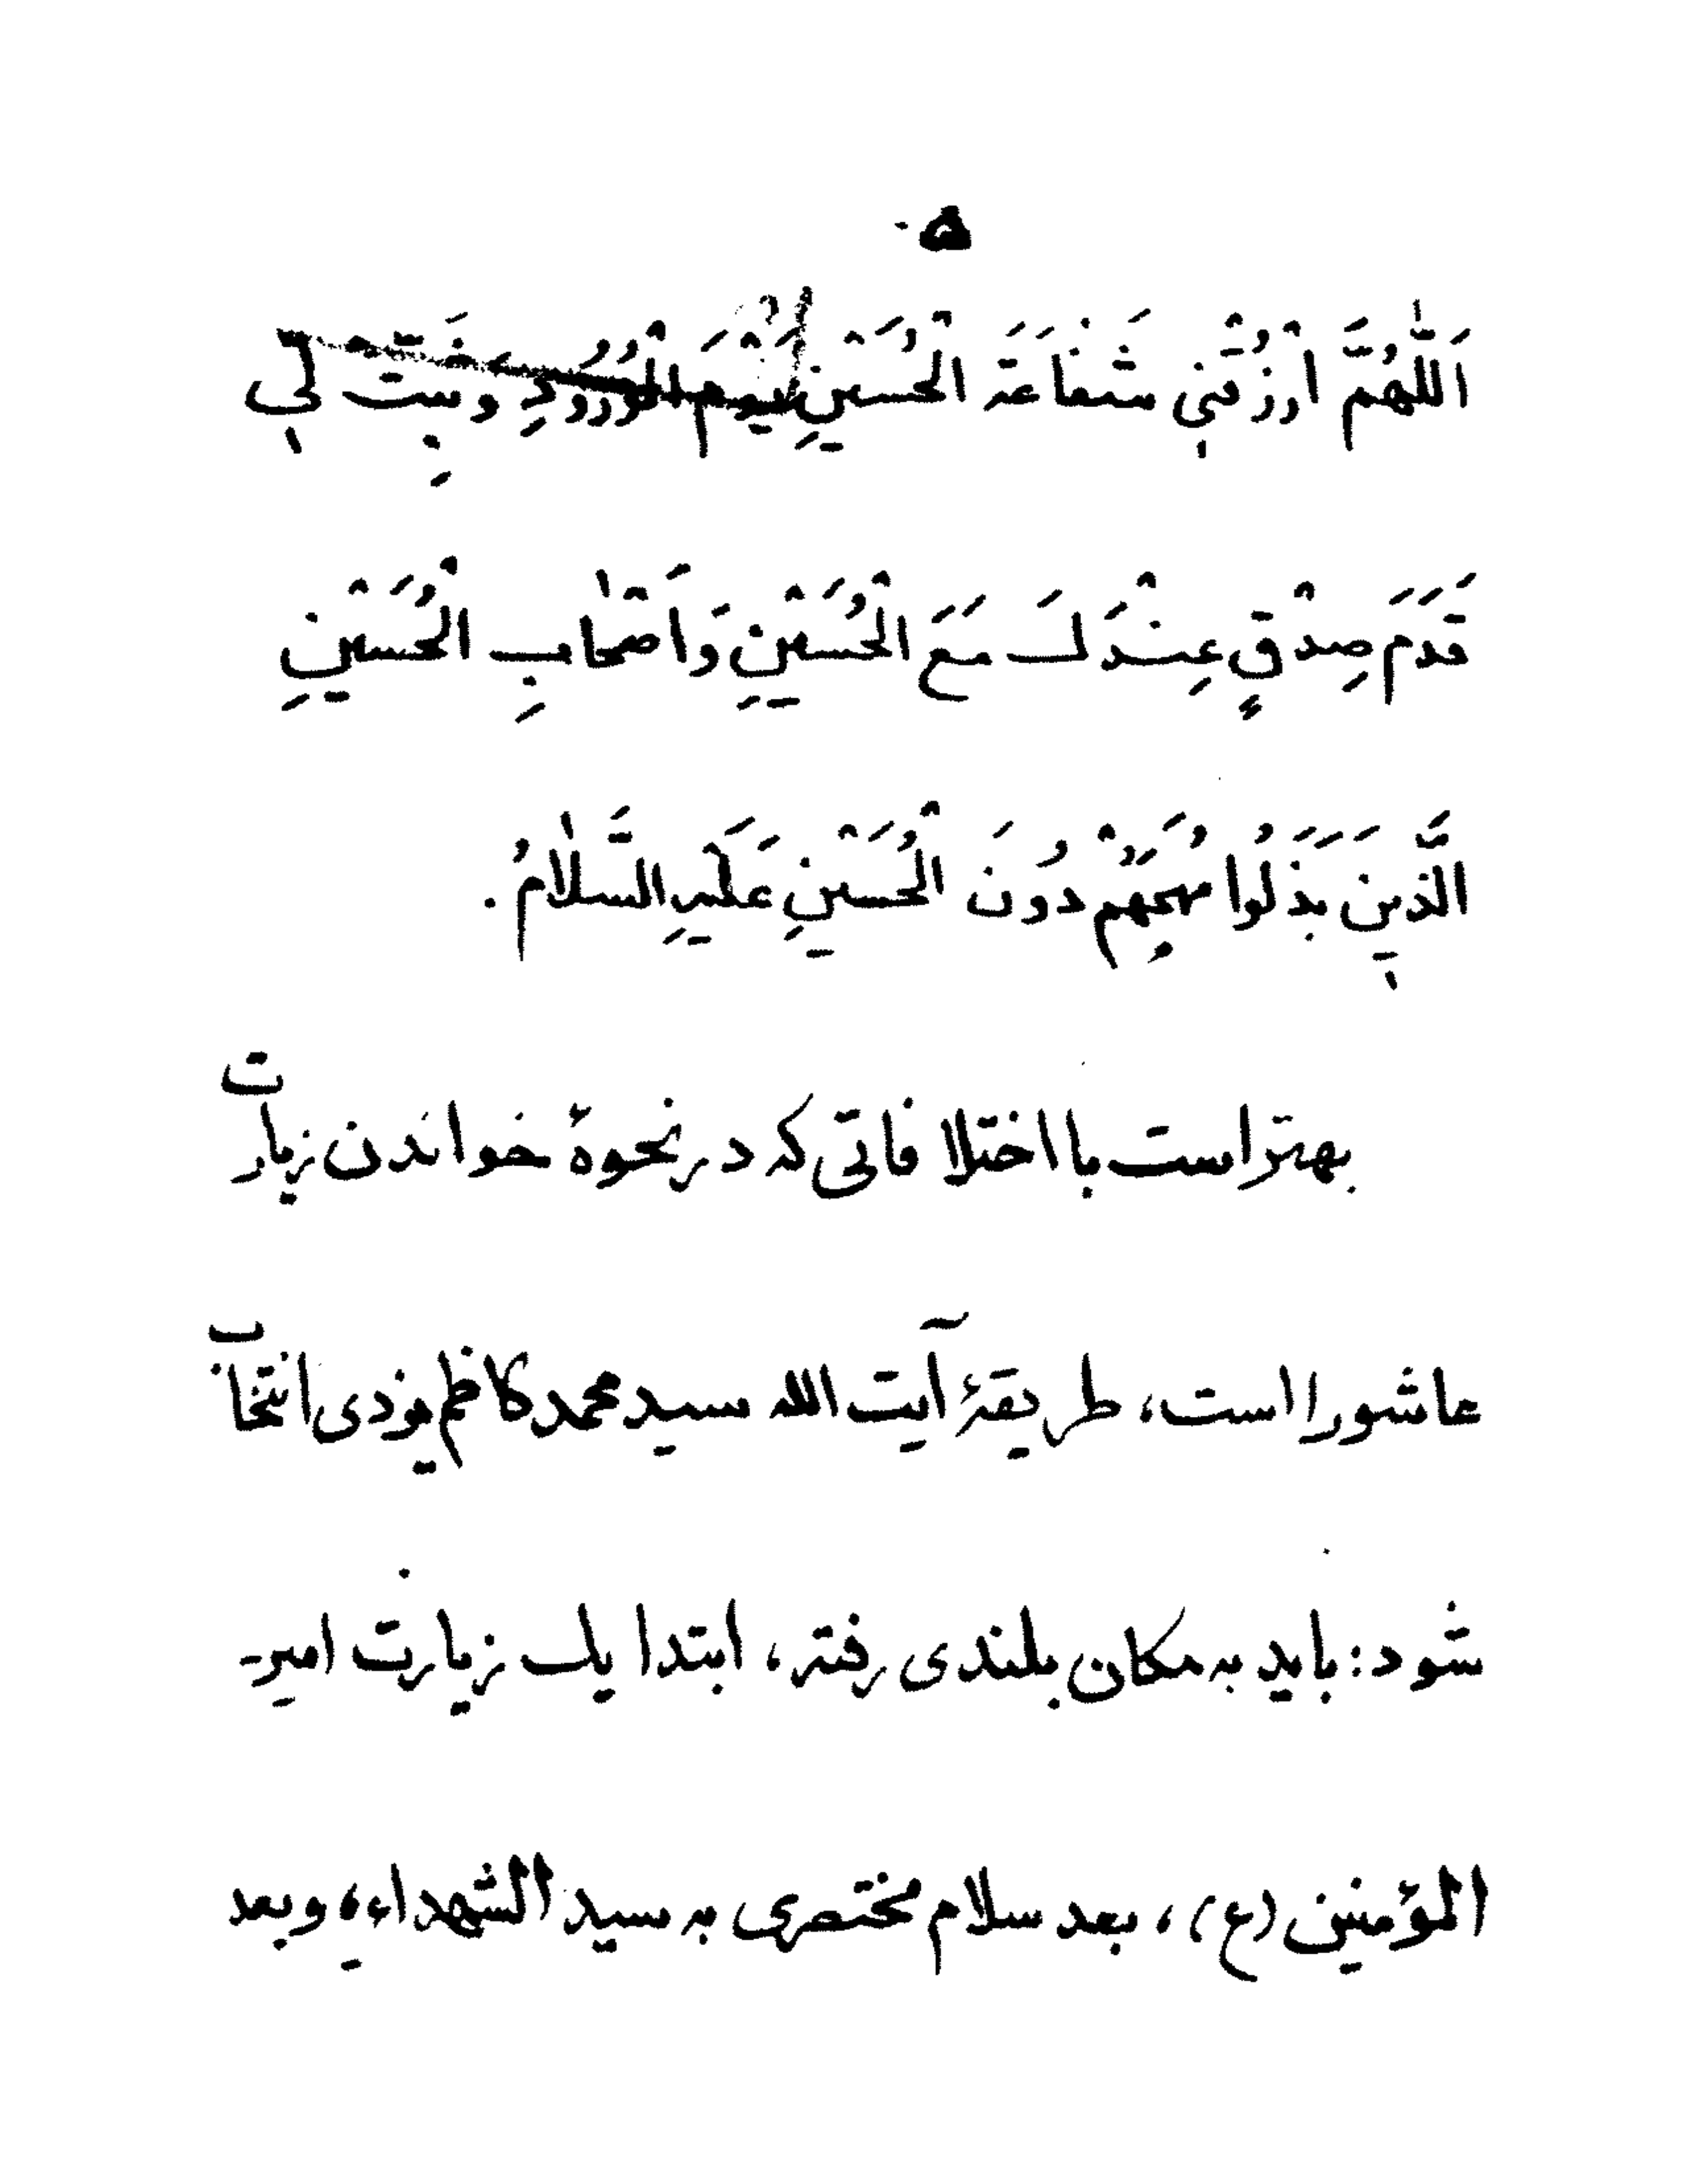 ۵۰
اَللّٰهُمَّ ارْزُقْنِي شَفَاعَةَ الْحُسَيْنِ يَوْمَ الْوُرُودِ وَثَبِّتْ لِي
قَدَمَ صِدْقٍ عِنْدَكَ مَعَ الْحُسَيْنِ وَاَصْحٰابِ الْحُسَيْنِ
الَّذِينَ بَذَلُوا مُهَجَهُمْ دُونَ الْحُسَيْنِ عَلَيْهِ السَّلٰامُ.
بهتر است با اختلافاتی که در نحوهٔ خواندن زیارت
عاشورا است، طریقهٔ آیت الله سید محمد کاظم یزدی انتخاب
شود: باید به مکان بلندی رفته، ابتدا یک زیارت امیر-
المؤمنین (ع)، بعد سلام مختصری به سید الشهداء، و بعد